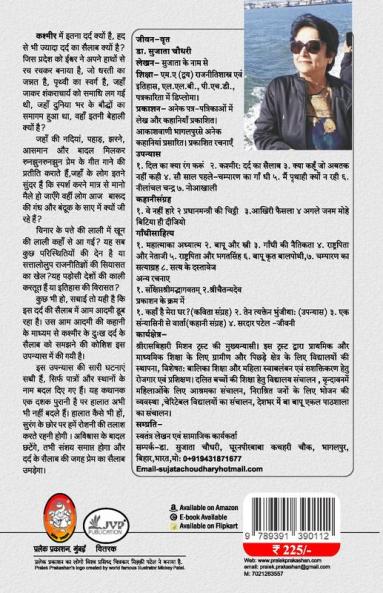 कश्मीर में इतना दर्द क्यों है, हद
से भी ज्यादा दर्द का सैलाब क्यों है?
जिस प्रदेश को ईश्वर ने अपने हाथों से
रच रचकर बनाया है, जो धरती का
जन्नत है, पृथ्वी का स्वर्ग है, जहाँ
जाकर शंकराचार्य को समाधि लग गई
थी, जहाँ दुनिया भर के बौद्धों का
समागम हुआ था, वहाँ इतनी बेहाली
क्यों है?
जहाँ की नदियां, पहाड़, झरने,
आसमान और बादल मिलकर
रुनझुनरुनझुन प्रेम के गीत गाने की
प्रतीति कराते हैं,जहाँ के लोग इतने
सुंदर हैं कि स्पर्श करने मात्र से मानो
मैले हो जाएँगे वहाँ लोग आज बारूद
की गंध और बंदूक के साए में क्यों जी
रहे हैं?
चिनार के पत्ते की लाली में खून
की लाली कहाँ से आ गई? यह सब
कुछ परिस्थितियों की देन है या
सत्तालोलुप राजनीतिज्ञों की सियासत
का खेल ?यह पड़ोसी देशों की काली
करतूत है या इतिहास की विरासत?
कुछ भी हो, सबाई तो यही है कि
इस दर्द की सैलाब में आम आदमी डूब
रहा है। उस आम आदमी की कहानी
के माध्यम से कश्मीर के दुःख दर्द के
सैलाब को समझने की कोशिश इस
उपन्यास में की गयी है।
इस उपन्यास की सारी घटनाएं
सच्ची हैं, सिर्फ पात्रों और स्थानों के
नाम बदल दिए गए हैं। यह कथानक
एक दशक पुरानी है पर हालात अभी
भी नहीं बदले हैं। हालात कैसे भी हों,
सुरंग के छोर पर हमें रोशनी की तलाश
करते रहनी होगी। अविश्वास के बादल
छटेंगे, तभी संशय समाप्त होगा और
दर्द के सैलाब की जगह प्रेम का सैलाब
उमड़ेगा।
जीवन-वृत्त
डा. सुजाता चौधरी
लेखन – सुजाता के नाम से
शिक्षा– एम.ए (द्वय) राजनीतिशास्त्र एवं
इतिहास, एल.एल.बी., पी.एच.डी.,
पत्रकारिता में डिप्लोमा।
प्रकाशन – अनेक पत्र-पत्रिकाओं में
लेख और कहानियाँ प्रकाशित।
आकाशवाणी भागलपुरसे अनेक
कहानियां प्रसारित। प्रकाशित रचनाएँ
उपन्यास
१. दिल का क्या रंग करूं २. कश्मीर: दर्द का सैलाब ३. क्या कहूँ जो अबतक
नहीं कही ४. सौ साल पहले-चम्पारण का गाँधी ५. मैं पृथा ही क्यों न रही ६.
नीलांचल चन्द्र ७. नोआखाली
कहानीसंग्रह
१. वे नहीं हारे २ प्रधानमन्त्री की चिट्ठी ३.आखिरी फैसला ४ अगले जनम मोहे
बिटिया ही दीजियो
गाँधीसाहित्य
१. महात्माका अध्यात्म २. बापू और स्त्री ३. गाँधी की नैतिकता ४. राष्ट्रपिता
और नेताजी ५. राष्ट्रपिता और भगतसिंह ६. बापू कृत बालपोथी,७. चम्पारण का
सत्याग्रह ८. सत्य के दस्तावेज
अन्य रचनाएं
१. संक्षिप्तश्रीमद्भागवतम् २.श्रीचैतन्यदेव
प्रकाशन के क्रम में
१. कहाँ है मेरा घर?(कविता संग्रह) २. तेन त्यक्तेन भुंजीथा: (उपन्यास) ३. एक
संन्यासिनी से वार्ता(कहानी संग्रह) ४. सरदार पटेल -जीवनी
कार्यक्षेत्र–
श्रीरासबिहारी मिशन ट्रस्ट की मुख्यन्यासी। इस ट्रस्ट द्वारा प्राथमिक और
माध्यमिक शिक्षा के लिए ग्रामीण और पिछड़े क्षेत्र के लिए विद्यालयों की
स्थापना, विशेषत: बालिका शिक्षा और महिला स्वावलंबन एवं सशक्तिकरण हेतु
रोजगार एवं प्रशिक्षण। दलित बच्चों की शिक्षा हेतु विद्यालय संचालन , वृन्दावनमें
महिलाओंके लिए आश्रमका संचालन, निराश्रित जनों के लिए भोजन की
व्यवस्था ,चेरिटेबल विद्यालयों का संचालन, देशभर में बा बापू एकल पाठशाला
का संचालन।
सम्प्रति–
स्वतंत्र लेखन एवं सामाजिक कार्यकर्ता
सम्पर्क-डा. सुजाता चौधरी, घूरनपीरबाबा कचहरी चौक, भागलपुर,
बिहार,भारत,मो: 0+919431871677
Email-sujatachoudharyhotmail.com
JVP
PUBLICATION
प्रलेक प्रकाशन, मुंबई वितरक
Available on Amazon
E-book Available
Available on Flipkart
9 789391 390112
₹ 225/-
www.pralekprakashan.com
email: pralek.prakashan@gmail.com
M: 7021263557
प्रलेक प्रकाशन का लोगो विश्व प्रसिद्ध चित्रकार मिक्की पटेल ने बनाया है.
Pralek Prakashan's logo created by world famous illustrator Mickey Patel.